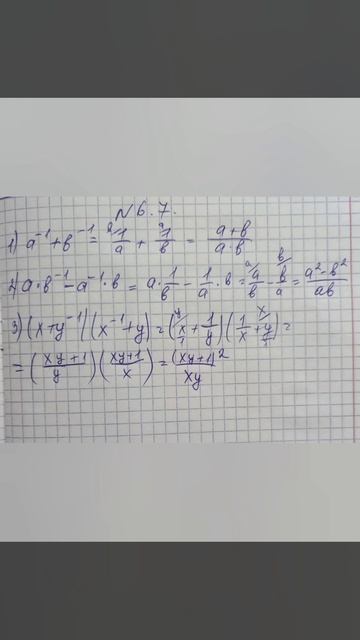 №6.7.
1) a⁻¹+b⁻¹ = ᵇ⁄1/a + ᵃ⁄1/b = a+b/a·b
2) a·b⁻¹-a⁻¹·b = a·1/b - 1/a·b = ᵃ⁄a/b - ᵇ⁄b/a = a²-b²/ab
3) (x+y⁻¹)(x⁻¹+y) = (ʸ⁄x/1 + 1/y)(1/x + ˣ⁄y/1) =
= (xy+1/y)(xy+1/x) = (xy+1)²/xy